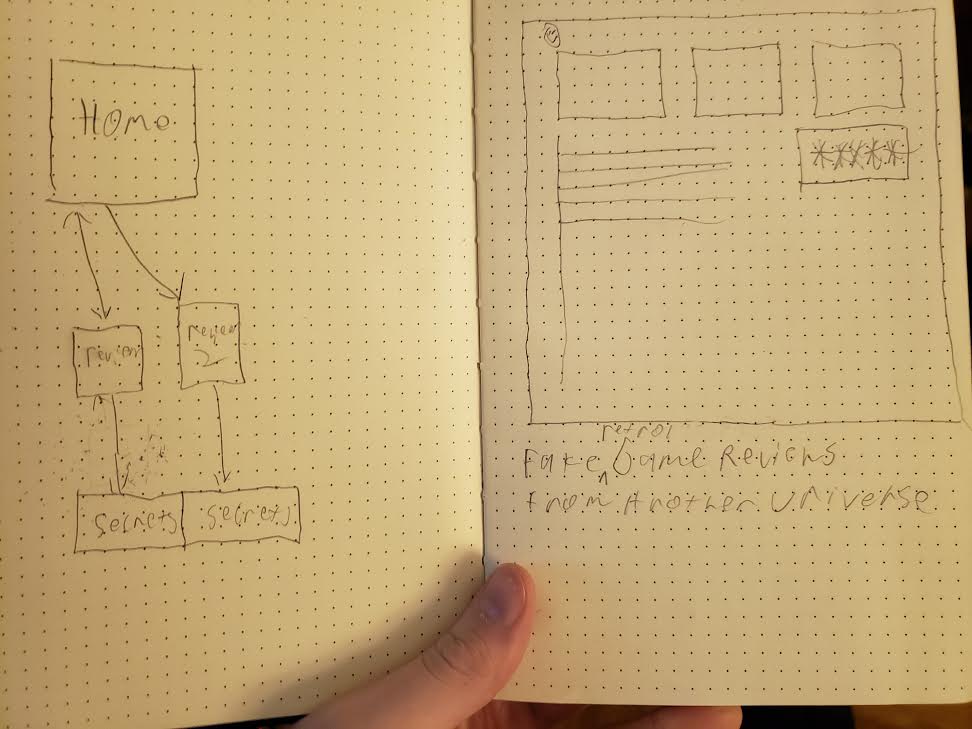 Home
review
review
2
Secrets
Secrets
*****
retro
Fake Game Reviews
from Another Universe